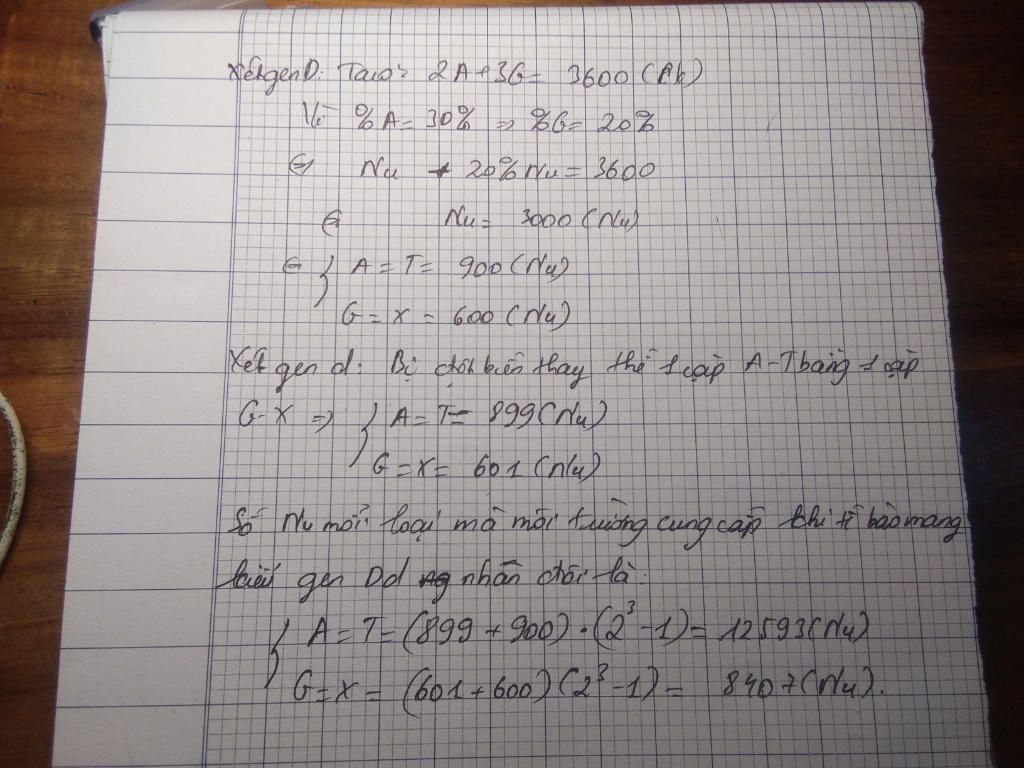 Xét gen D: Ta có: 2A+3G= 3600 (lk)
Vì %A= 30% => %G= 20%
Nu + 20%Nu = 3600
Nu = 3000 (Nu)
A = T = 900 (Nu)
G = X = 600 (Nu)
Xét gen d: Bị đột biến thay thế 1 cặp A-T bằng 1 cặp
G-X => A = T = 899 (Nu)
G = X = 601 (Nu)
Số Nu mỗi loại mà môi trường cung cấp khi tế bào mang
kiểu gen Dd nhân đôi là:
A = T = (899 + 900) . (2³ - 1) = 12593 (Nu)
G = X = (601 + 600) (2³ - 1) = 8407 (Nu).